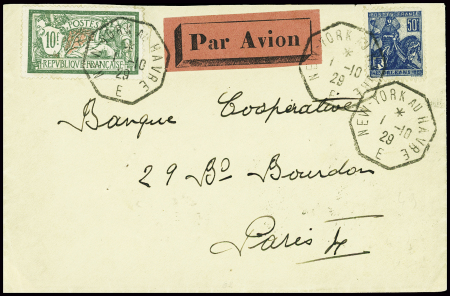 POSTES
10f
REPUBLIQUE FRANÇAISE
Par Avion
50c
ORLEANS
NEW-YORK AU HAVRE
* 
1 -10
29
E
NEW-YORK AU HAVRE
*
1 -10
29
E
NEW-YORK AU HAVRE
*
1 -10
29
E
Banque Coopérative
29 Bd Bourdon
Paris 4